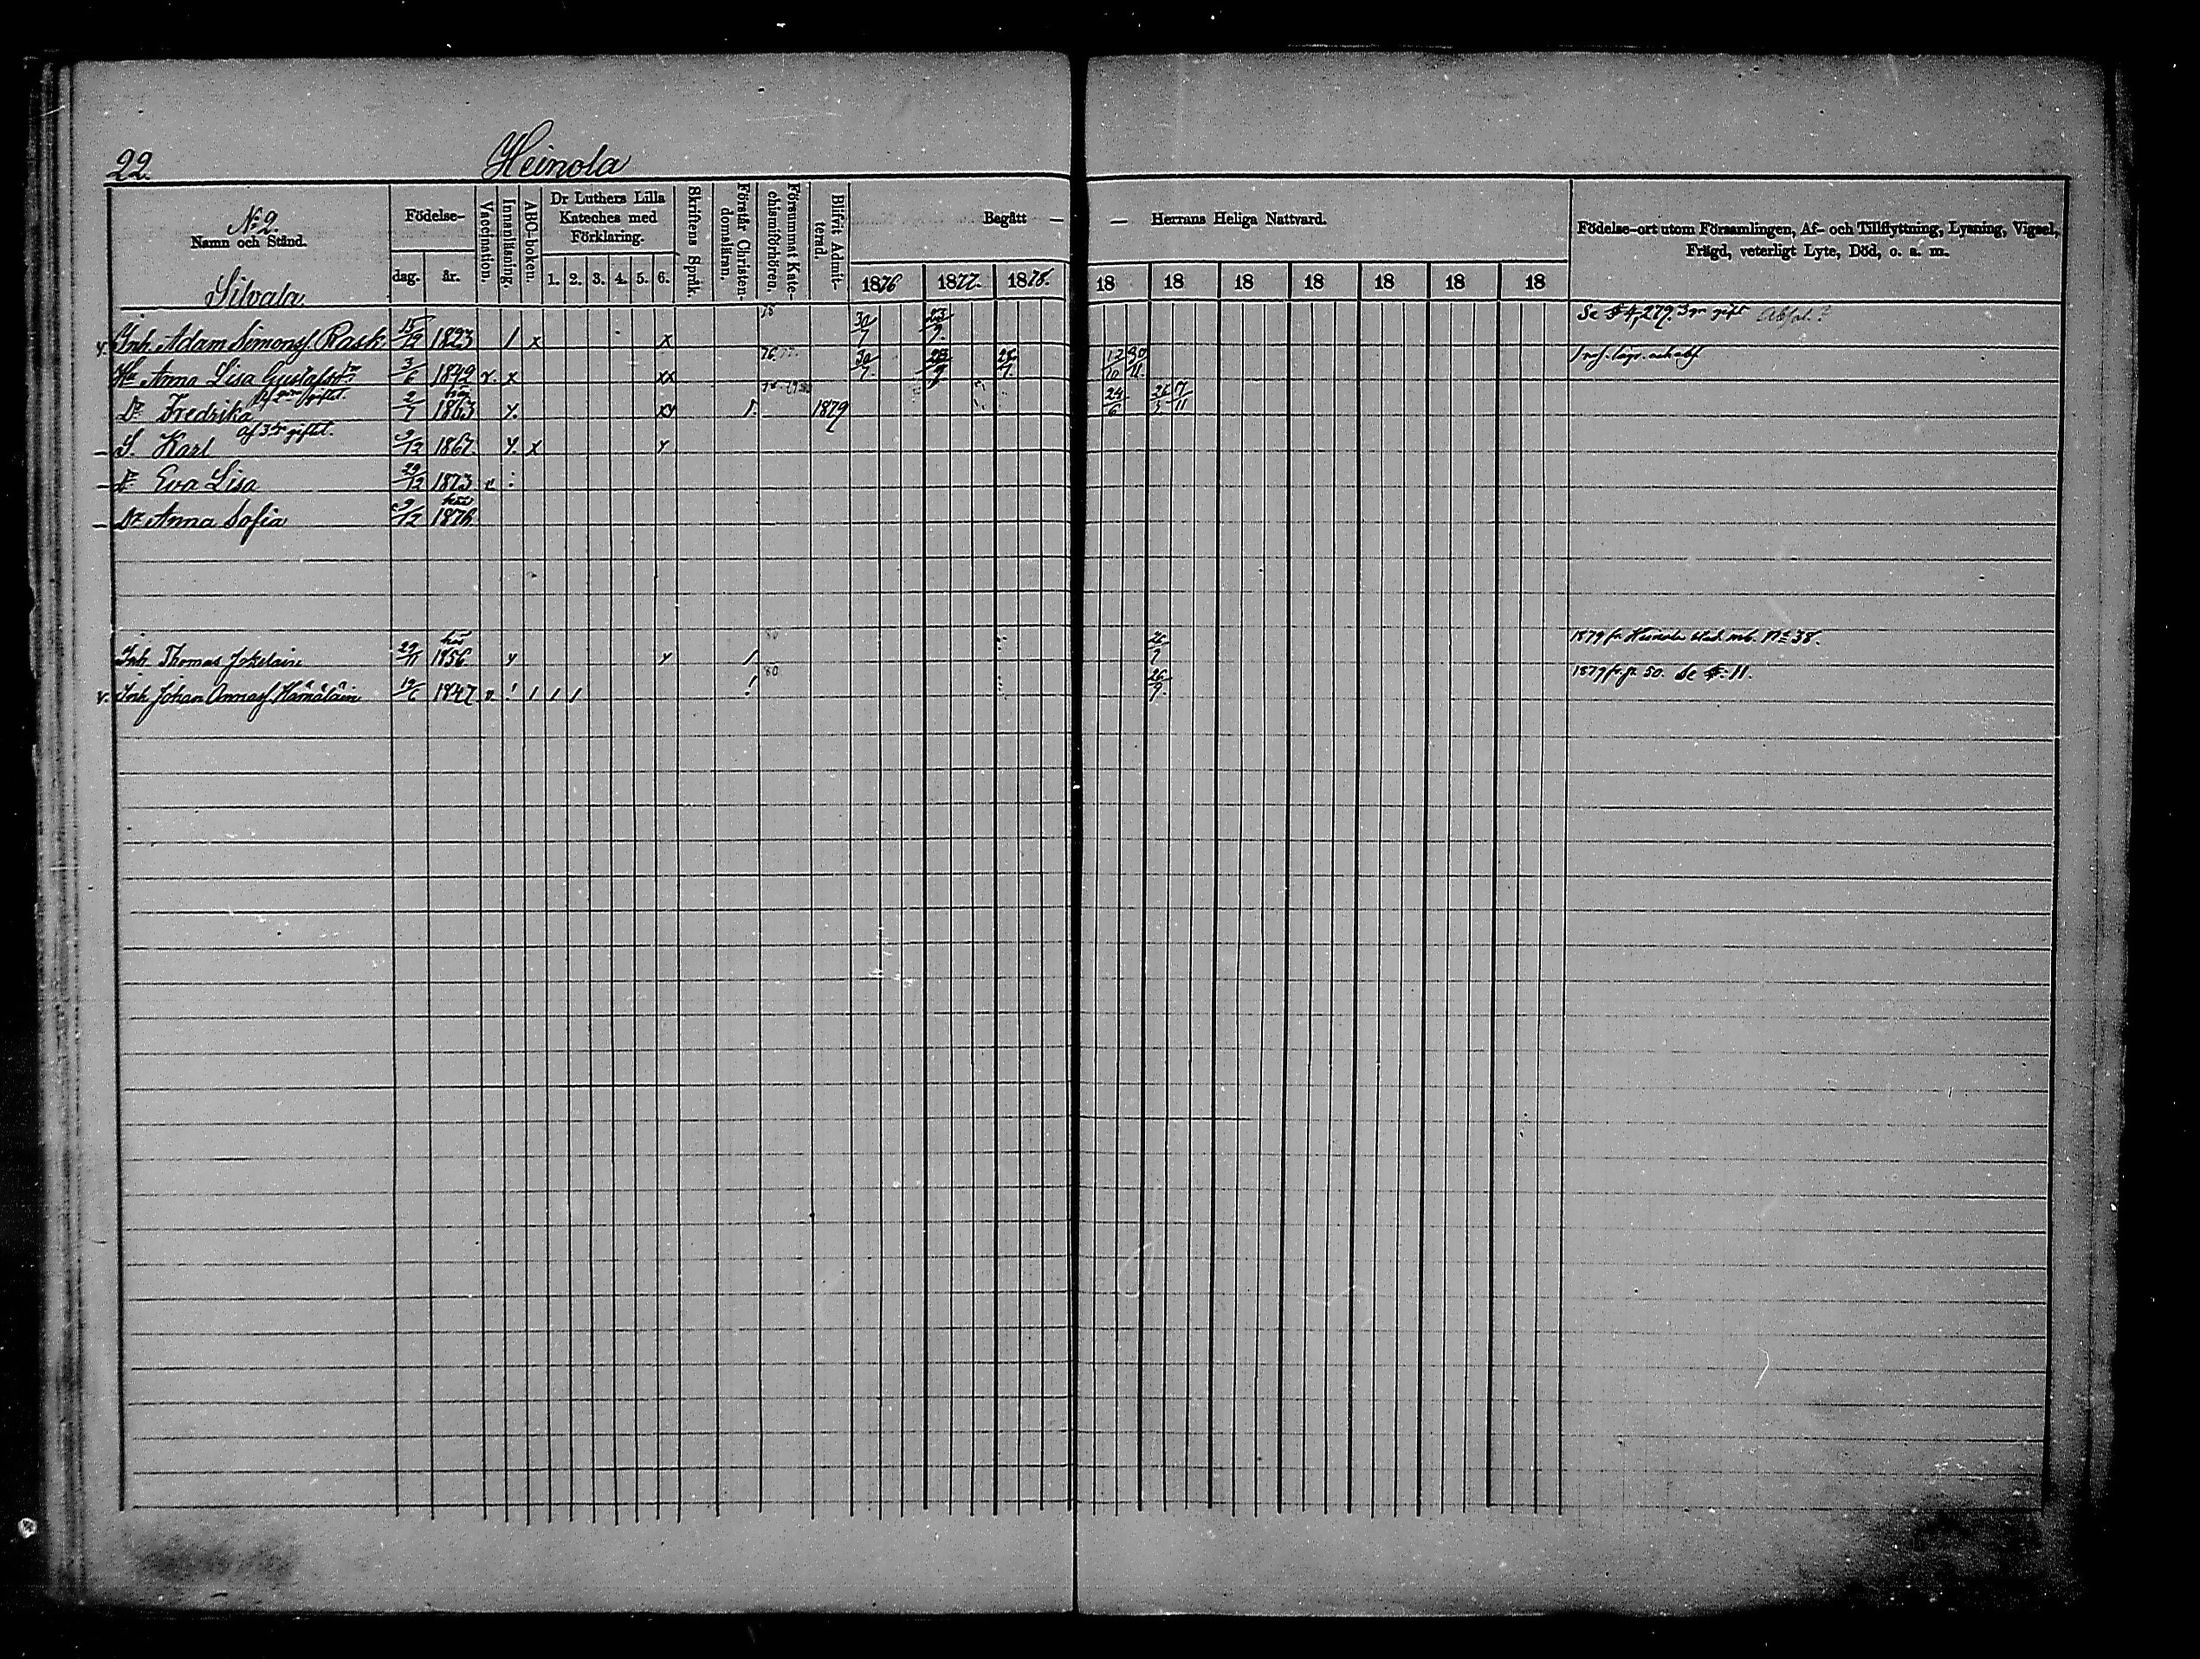 22. Heinola
N:o 2.
Namn och Stånd.
Silvala
Födelse-
dag. år.
Vaccination.
Innanläsning.
ABC-boken.
Dr Luthers Lilla Kateches med Förklaring.
1. 2. 3. 4. 5. 6.
Skriftens Språk.
Förstår Christendomsläran.
Försummat Katechismiförhören.
Blifvit Admitterad.
Begått — — Herrans Heliga Nattvard.
1876 1877. 1878. 18 18 18 18 18 18 18
Födelse-ort utom Församlingen, Af- och Tillflyttning, Lysning, Vigsel,
Frägd, veterligt Lyte, Död, o. a. m.
v. Inh. Adam Simonsf. Rask 15/12 1823 / x x 30/7 23/9. 279. 3:dje gift
Hu Anna Lisa Gustafsdr 3/6 1849 v. x xx 76 77 30/7 23/9 28/7. 12/10 30/11
af giftet.
Dr Fredrika 2/7 1863 y. xy 1. 1879 24/6 26/5 17/11
af 3dje giftet.
– S. Karl 9/12 1867. y. x y
– Dr Eva Lisa 29/12 1873 v :
– Dr Anna Sofia 9/12 1876
Inh Thomas Jokelain 29/11 1856 y y / 26/9 1879 fr Heinola stad mb. No 38.
v. Inh Johan Annasf Hämäläin 19/6 1847 v. ! 1 1 1 ! 80 26/9. 1879 fr. p. 50. Se p: 11.